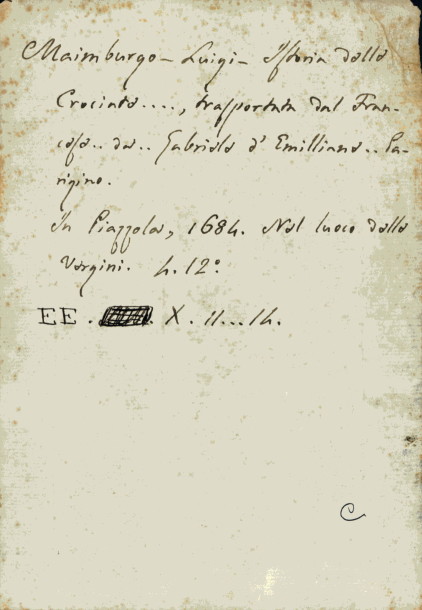 Maimburgo – Luigi – Istoria delle
Crociate...., trasportata dal Fran-
cese.. da.. Gabriele d'Emilliane.. Pa-
rigino.
In Piazzola, 1684. Nel luoco delle
Vergini. 4. 12º
EE. X. 11...14.
C